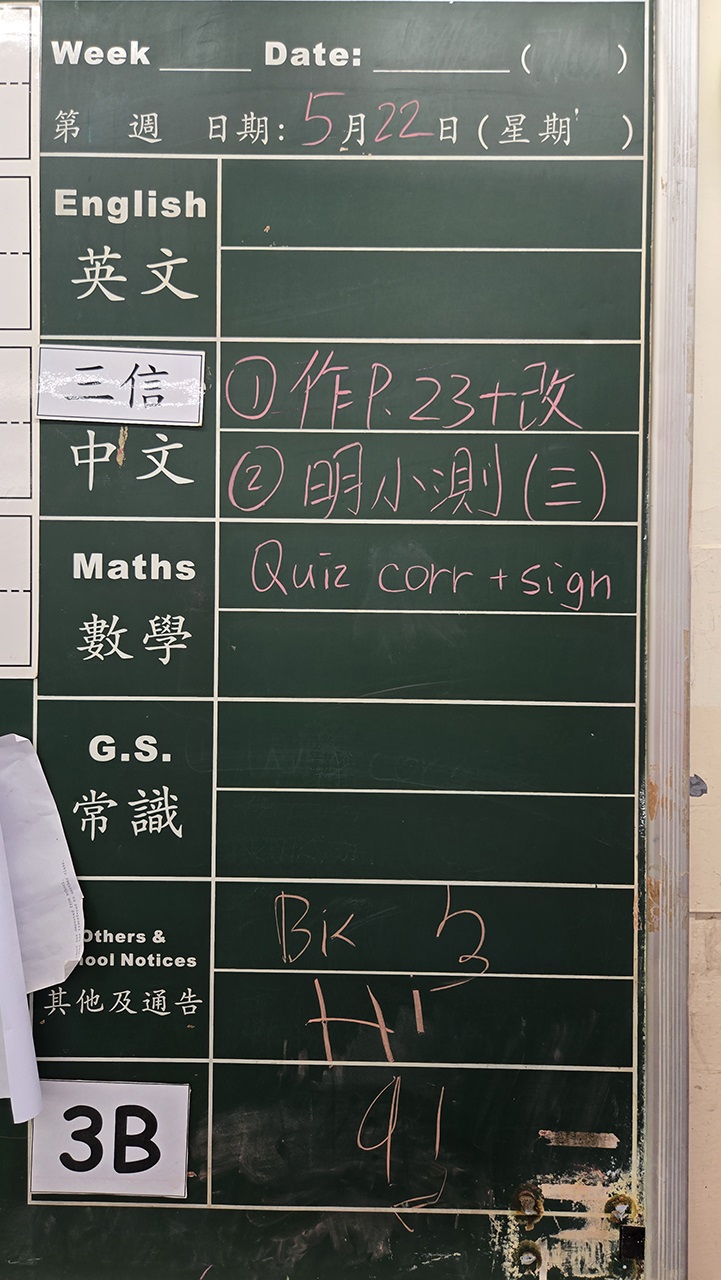 Week ____ Date: ______ ( )
第 週 日期: 5月22日 (星期 )
English
英文
三信
中文
① 作P.23+改
② 明小測(三)
Maths
數學
Quiz corr + sign
G.S.
常識
Others &
ool Notices
其他及通告
Bik
Hi
3B
91